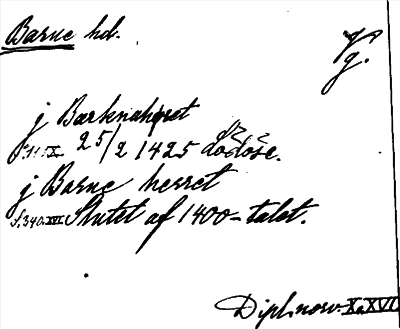 Barne hd.
g.
j Barknahæret
25/2 1425 dödöse.
j Barne herret
S.340.XVI. Slutet af 1400-talet.
Dipl. norv. X o. XVI